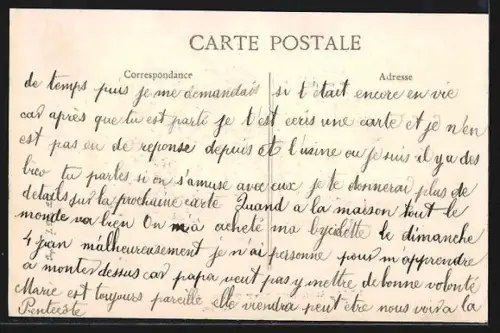 CARTE POSTALE
Correspondance
Adresse
de temps puis je me demandais si t'était encore en vie
car après que tu est parti je t'est ecris une carte et je n'en
est pas eu de reponse depuis et l'usine ou je suis il y a des
bico tu parles si on s'amuse avec eux je te donnerai plus de
details sur la prochaine carte Quand a la maison tout le
monde va bien On m'a acheté ma bycilette le dimanche
4 juin malheureusement je n'ai personne pour m'apprendre
a monter dessus car papa veut pas y mettre de bonne volonté
Marie est toujours pareille elle viendra peut être nous voir a la
Pentecôte